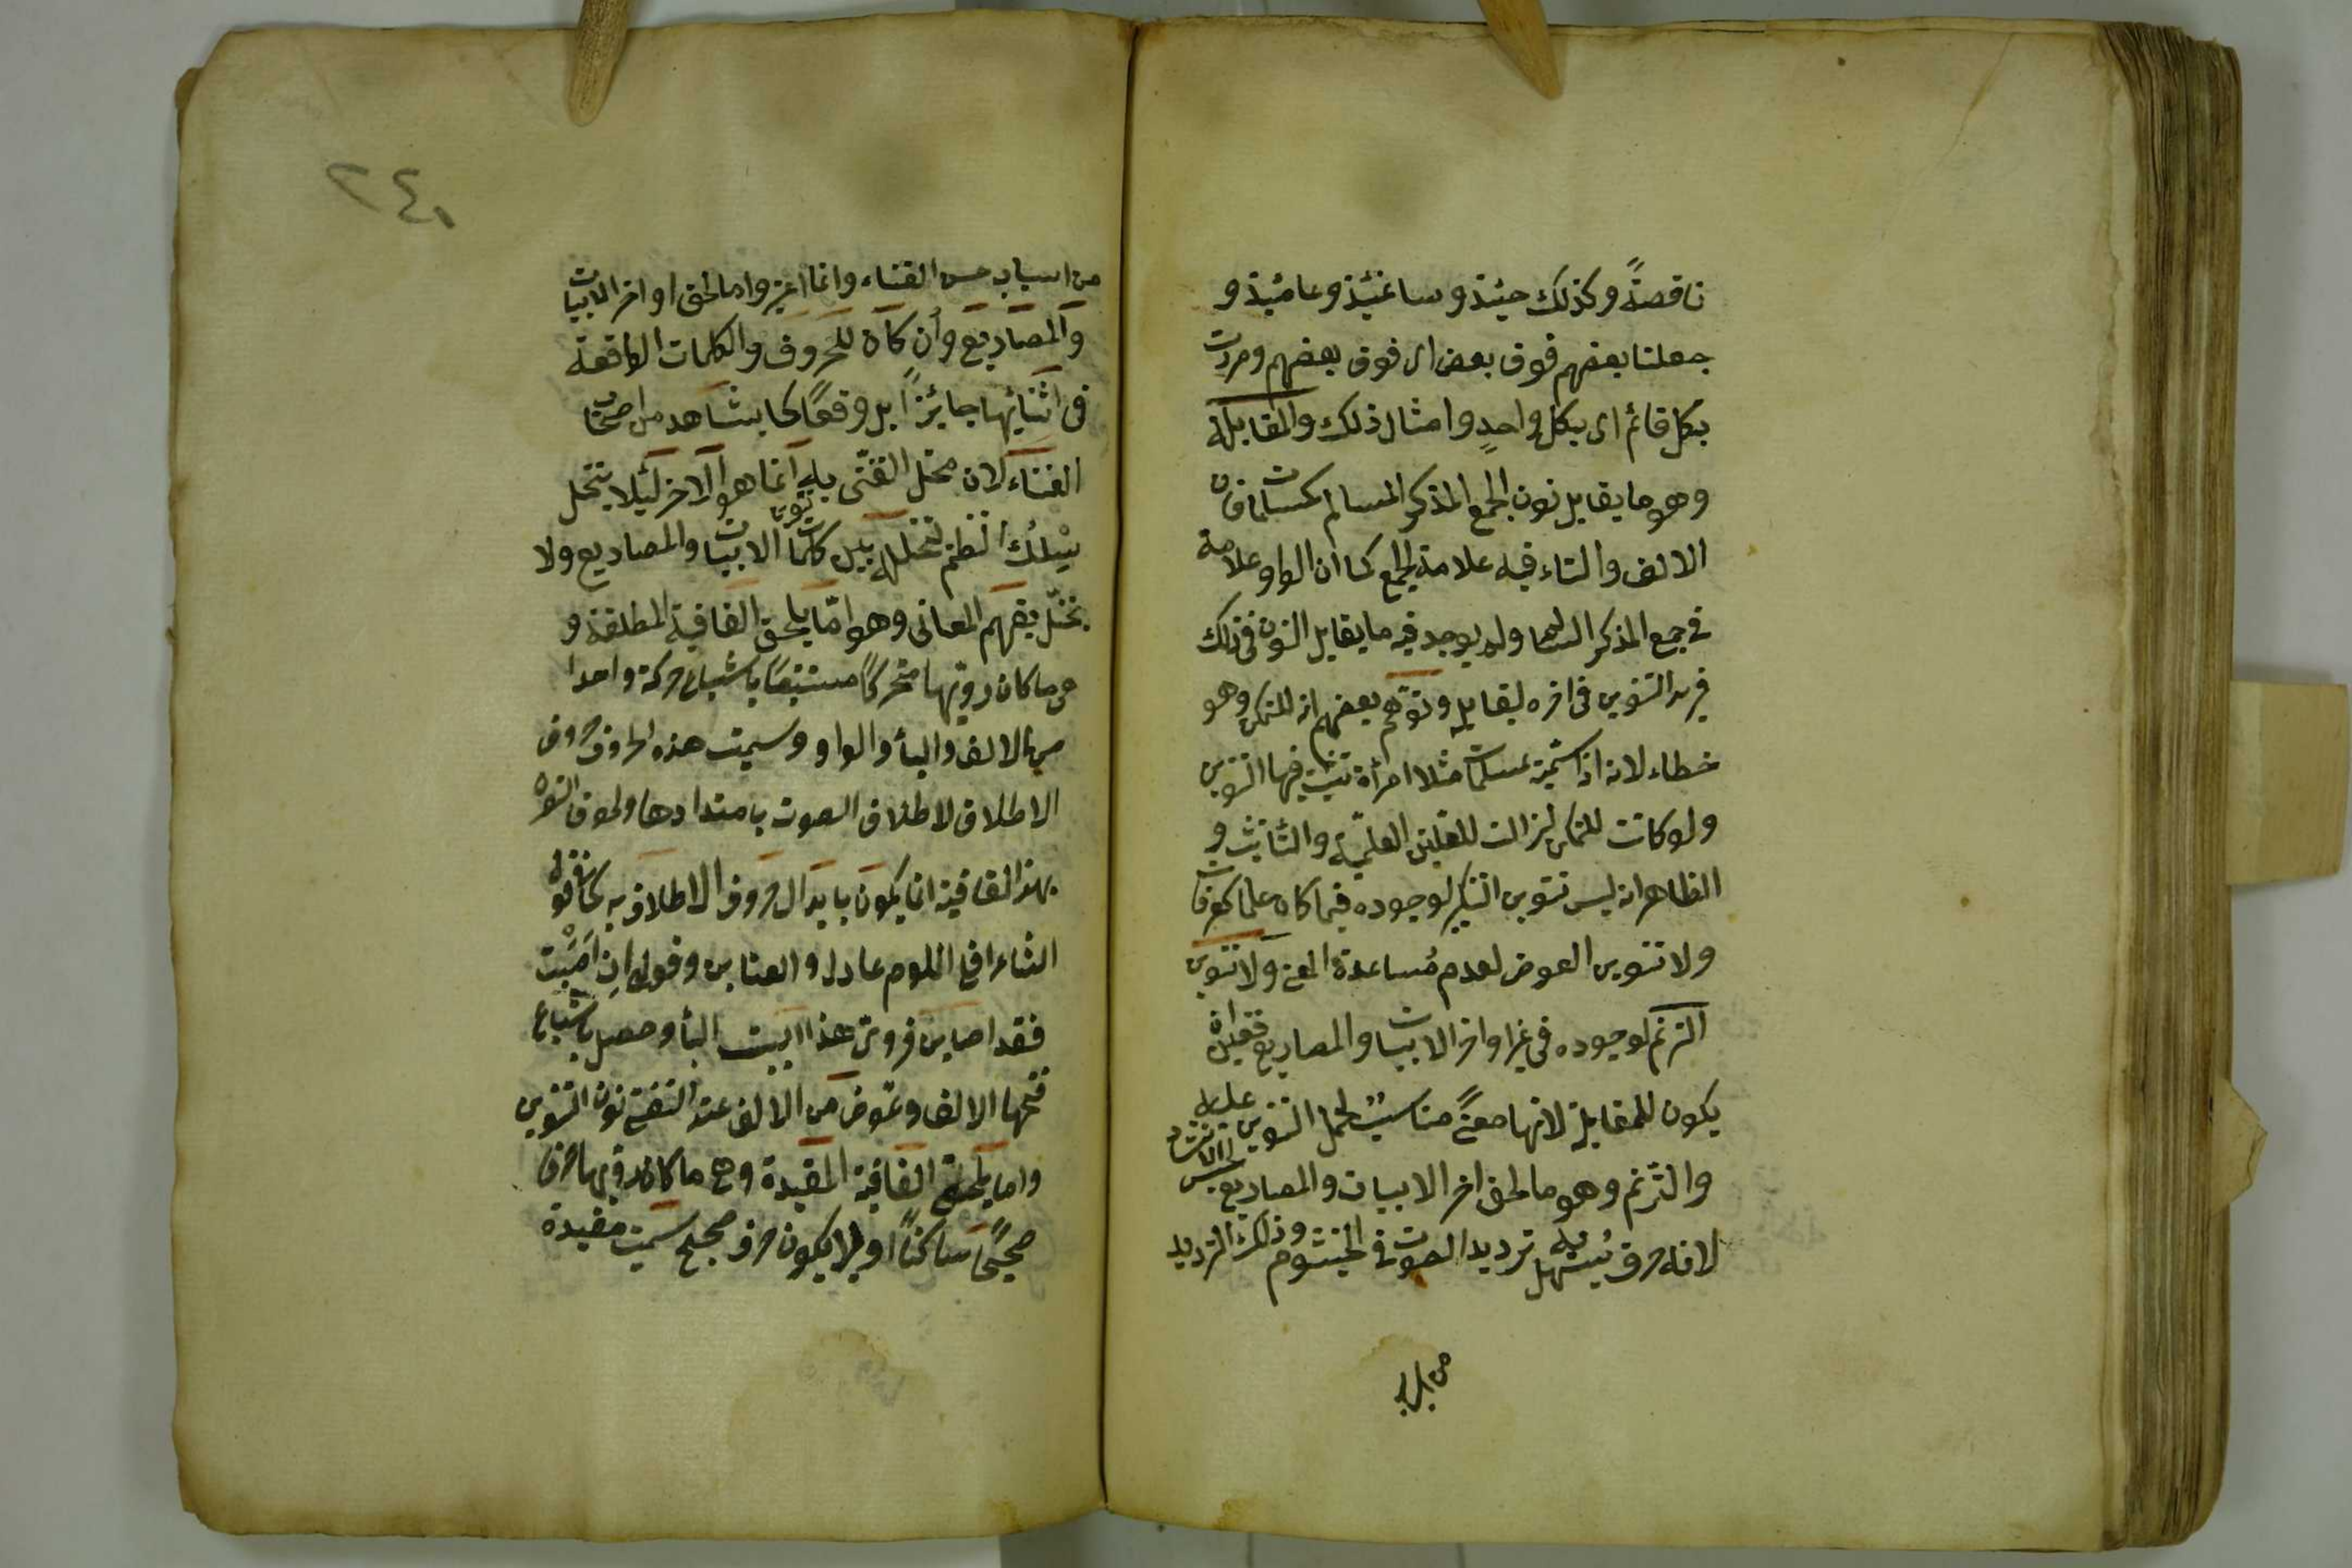 ناقصةً وكذلك حينئذ وساعتئذ وعامئذ و
جعلنا بعضهم فوق بعض اى فوق بعضهم ومررت
بكل قائم اى بكل واحدٍ وامثال ذلك والمقابلة
وهو ما يقابل نون الجمع المذكر السالم كمسلمات فان
الالف والتاء فيه علامة الجمع كما ان الواو علامة
فى جمع المذكر السالم ولم يوجد فيه ما يقابل النون فى ذلك
فزيد التنوين فى اخره ليقابله وتوهم بعضهم انه للتمكن وهو
خطاء لانه اذا سميت بمسلمات مثلا امرأة تثبت فيها التنوين
ولو كانت للتمكن لزالت للعلتين العلمية والتأنيث و
الظاهر انه ليس تنوين التنكير لوجوده فيما كان علما كعرفات
ولا تنوين العوض لعدم مُساعدة المعنى ولا تنوين
الترنم لوجوده فى غير اواخر الابيات والمصاريع فتعين ان
يكون للمقابلة لانها معنىً مناسبٌ لحمل التنوين عليه
والترنم وهو ما لحق اخر الابيات والمصاريع لتحسين الانشاد
لانه حرف يُسهل به ترديد الصوت فى الخيشوم وذلك الترديد
من اسباب
٢٤٠
من اسباب حسن الغناء وانما اعتبروا ما لحق اواخر الابيات
والمصاريع وان كان للحروف والكلمات الواقعة
فى اثنائها جائزاً بل وقعًا كما يشاهد من اصحاب
الغناء لان محل التغنى به انما هو الآخر لئلا يتخلل
سِلكُ النظم لتخلله بين كلمات الابيات والمصاريع ولا
يختل بفهم المعانى وهو امّا يلحق القافية المطلقة و
هى ما كان رويها متحركاً مستتبعًا باشباع حركة واحدا
من الالف والياء والواو وسميت هذه الحروف حروف
الاطلاق لاطلاق الصوت بامتدادها ولحوق التنوين
بهذا القافية انما يكون بابدال حروف الاطلاق به كما فى قول
الشاعر اقلى اللوم عاذل والعتابن وقولى ان اَصَبْتِ
فقد اصابن فروىّ هذا البيت الباء وحصل باشباع
فتحها الالف وعوض من الالف عند التغنى نون التنوين
واما يلحق القافية المقيدة وهى ما كان رويها حرفا
صحيحًا ساكنًا او لا يكون حرف صحيح سميت مقيدة